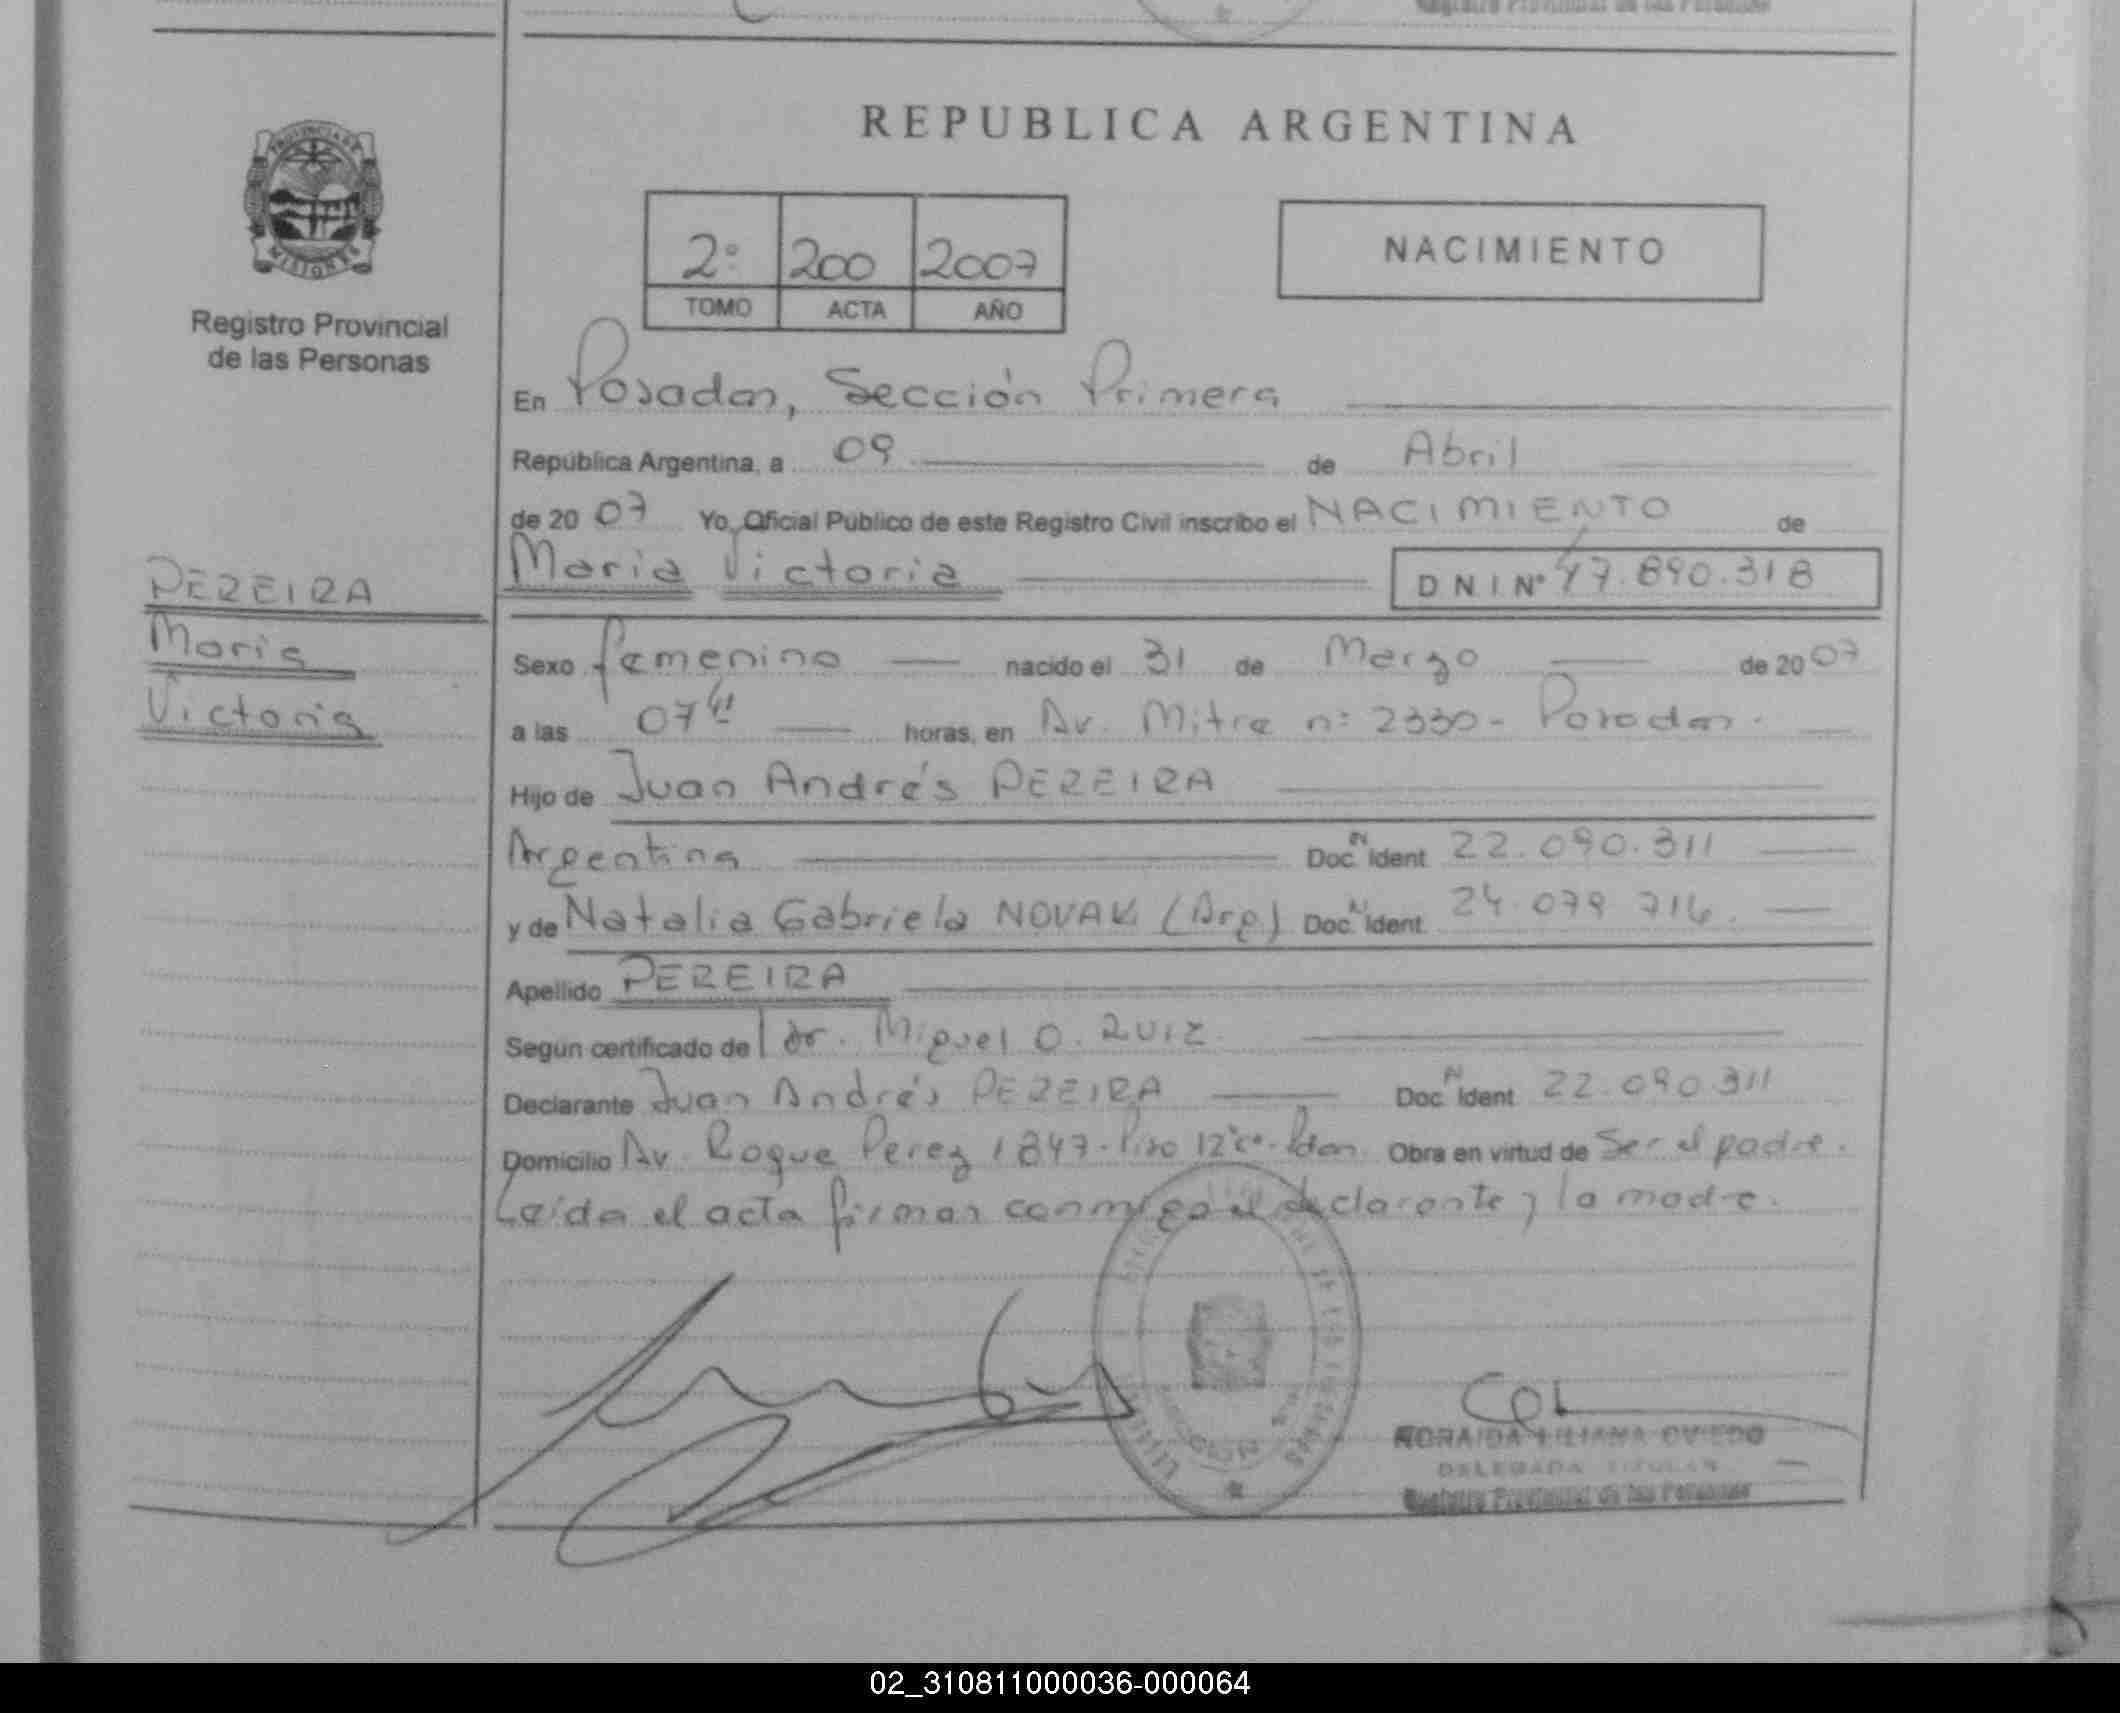 REPUBLICA ARGENTINA
PROVINCIA DE
MISIONES
Registro Provincial
de las Personas
2º 200 2007
TOMO ACTA AÑO
NACIMIENTO
En Posadas, Sección Primera
República Argentina, a 09 de Abril
de 2007 Yo, Oficial Público de este Registro Civil inscribo el NACIMIENTO de
Maria Victoria D N I Nº 47.890.318
PEREIRA
Maria
Victoria
Sexo femenino nacido el 31 de Marzo de 2007
a las 07 horas, en Av. Mitre nº 2330 - Posadas.
Hijo de Juan Andrés PEREIRA
Argentina Doc. N Ident 22.090.311
y de Natalia Gabriela NOVAK (Arg) Doc. N Ident. 24.079.716.
Apellido PEREIRA
Según certificado de dr. Miguel O. Ruiz
Declarante Juan Andrés PEREIRA Doc. N Ident 22.090.311
Domicilio Av. Roque Perez 1847 - Piso 12 - Pdas. Obra en virtud de Ser el padre.
Leida el acta firman conmigo el declarante y la madre.
LILIANA OVIEDO
DELEGADA TITULAR
Registro Provincial de las Personas
02_310811000036-000064